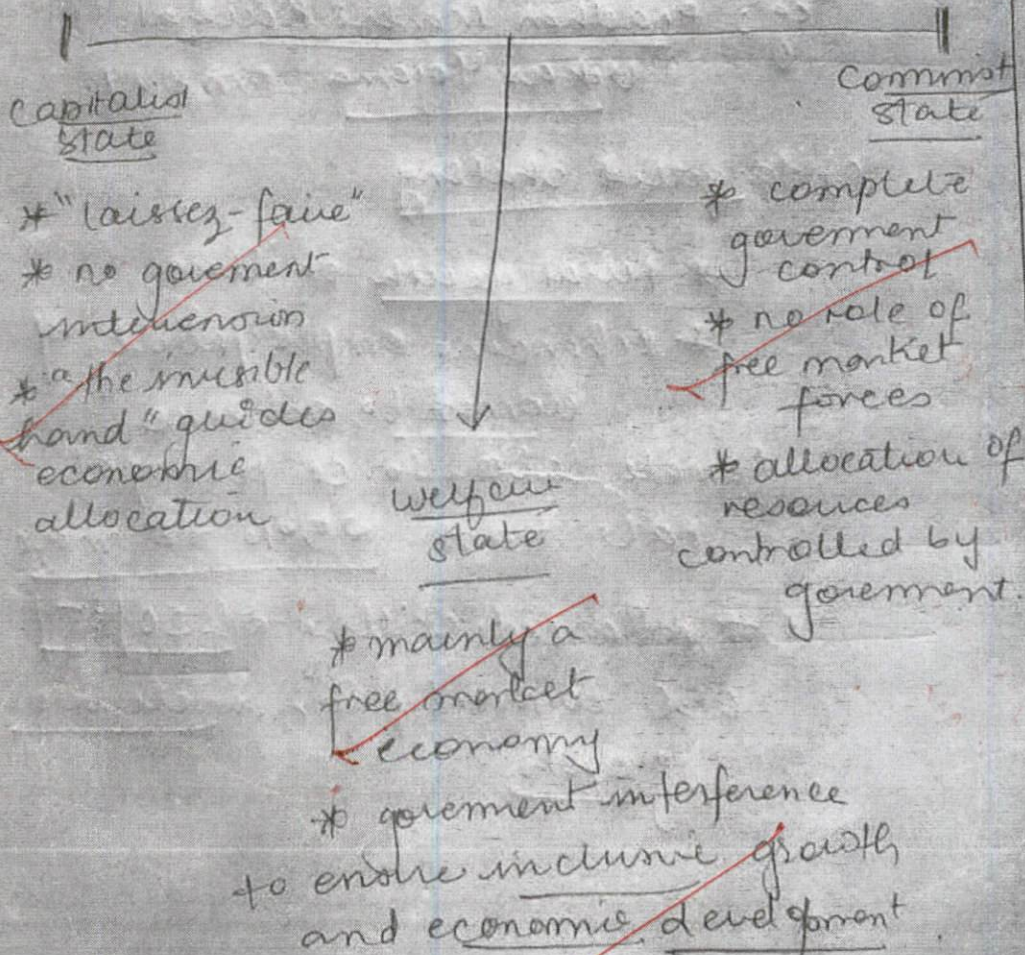 Capitalist
state
* "laissez-faire"
* no goverment
intervenoin
* "the invisible
hand" guides
economic
allocation
Commist
state
* complete
goverment
control
* no role of
free market
forces
* allocation of
resouces
controlled by
goverment.
Welfare
state
* mainly a
free market
economy
* goverment interference
to ensure inclusive growth
and economic development.